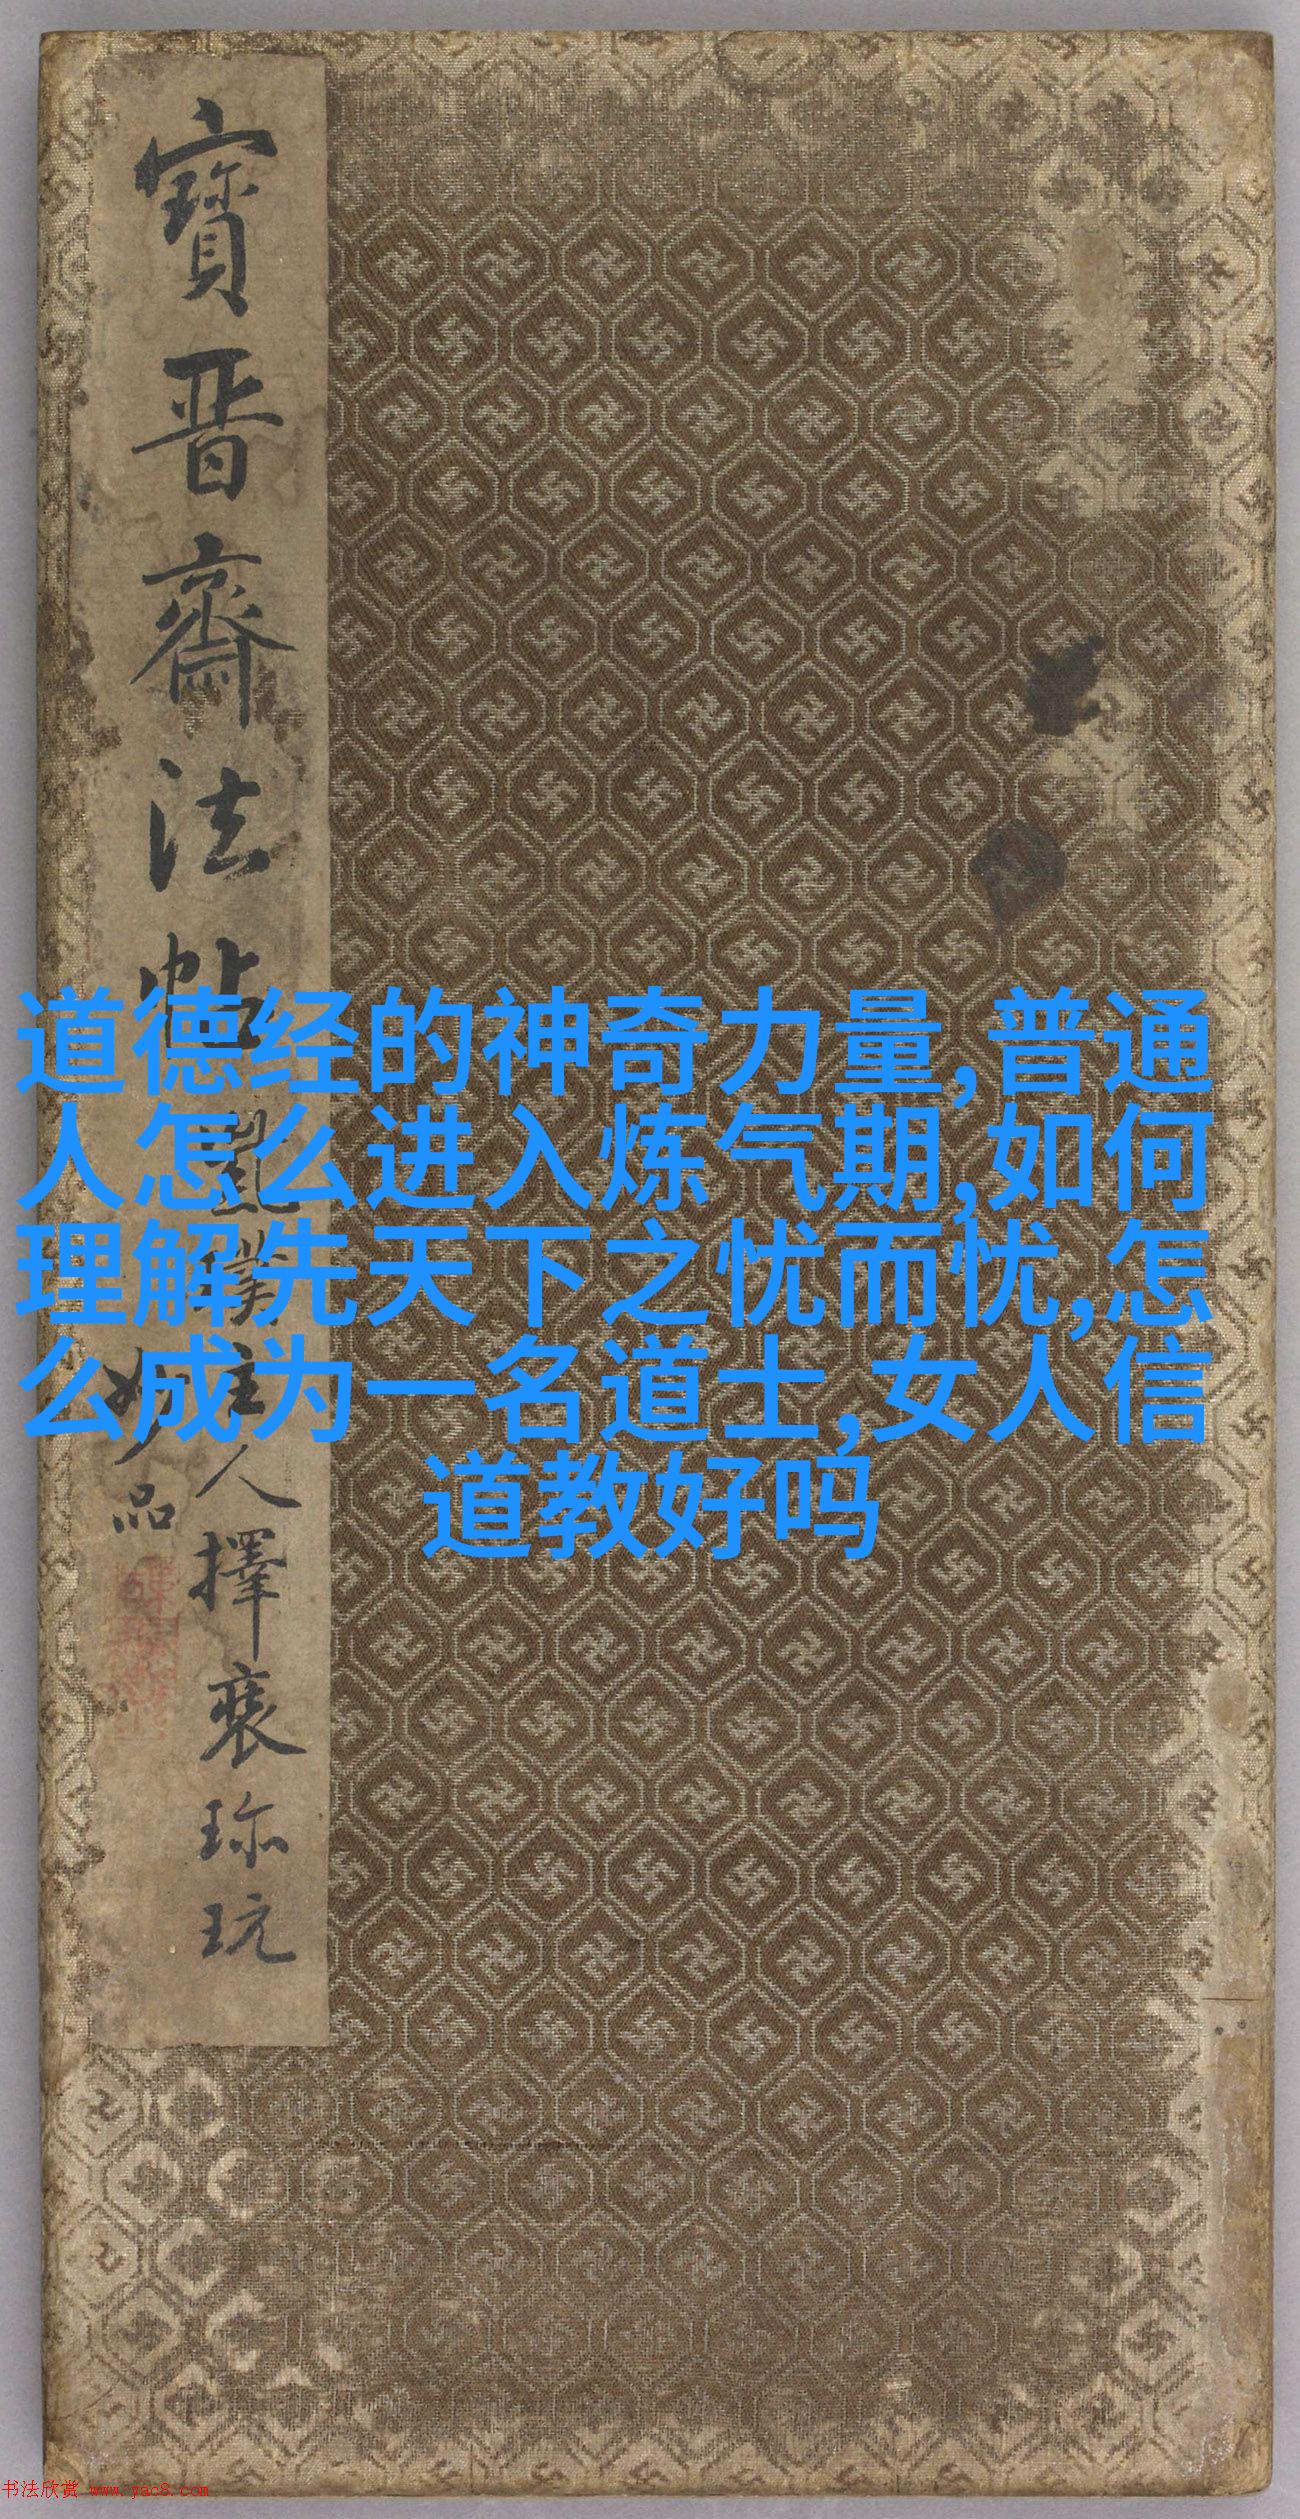 寳晋齋法帖
璞主人擇裘珎玩
妙品
道德经的神奇力量,普通
人怎么进入炼气期,如何
理解先天下之忧而忧,怎
么成为一名道士,女人信
道教好吗
书法欣赏 www.yac8.com